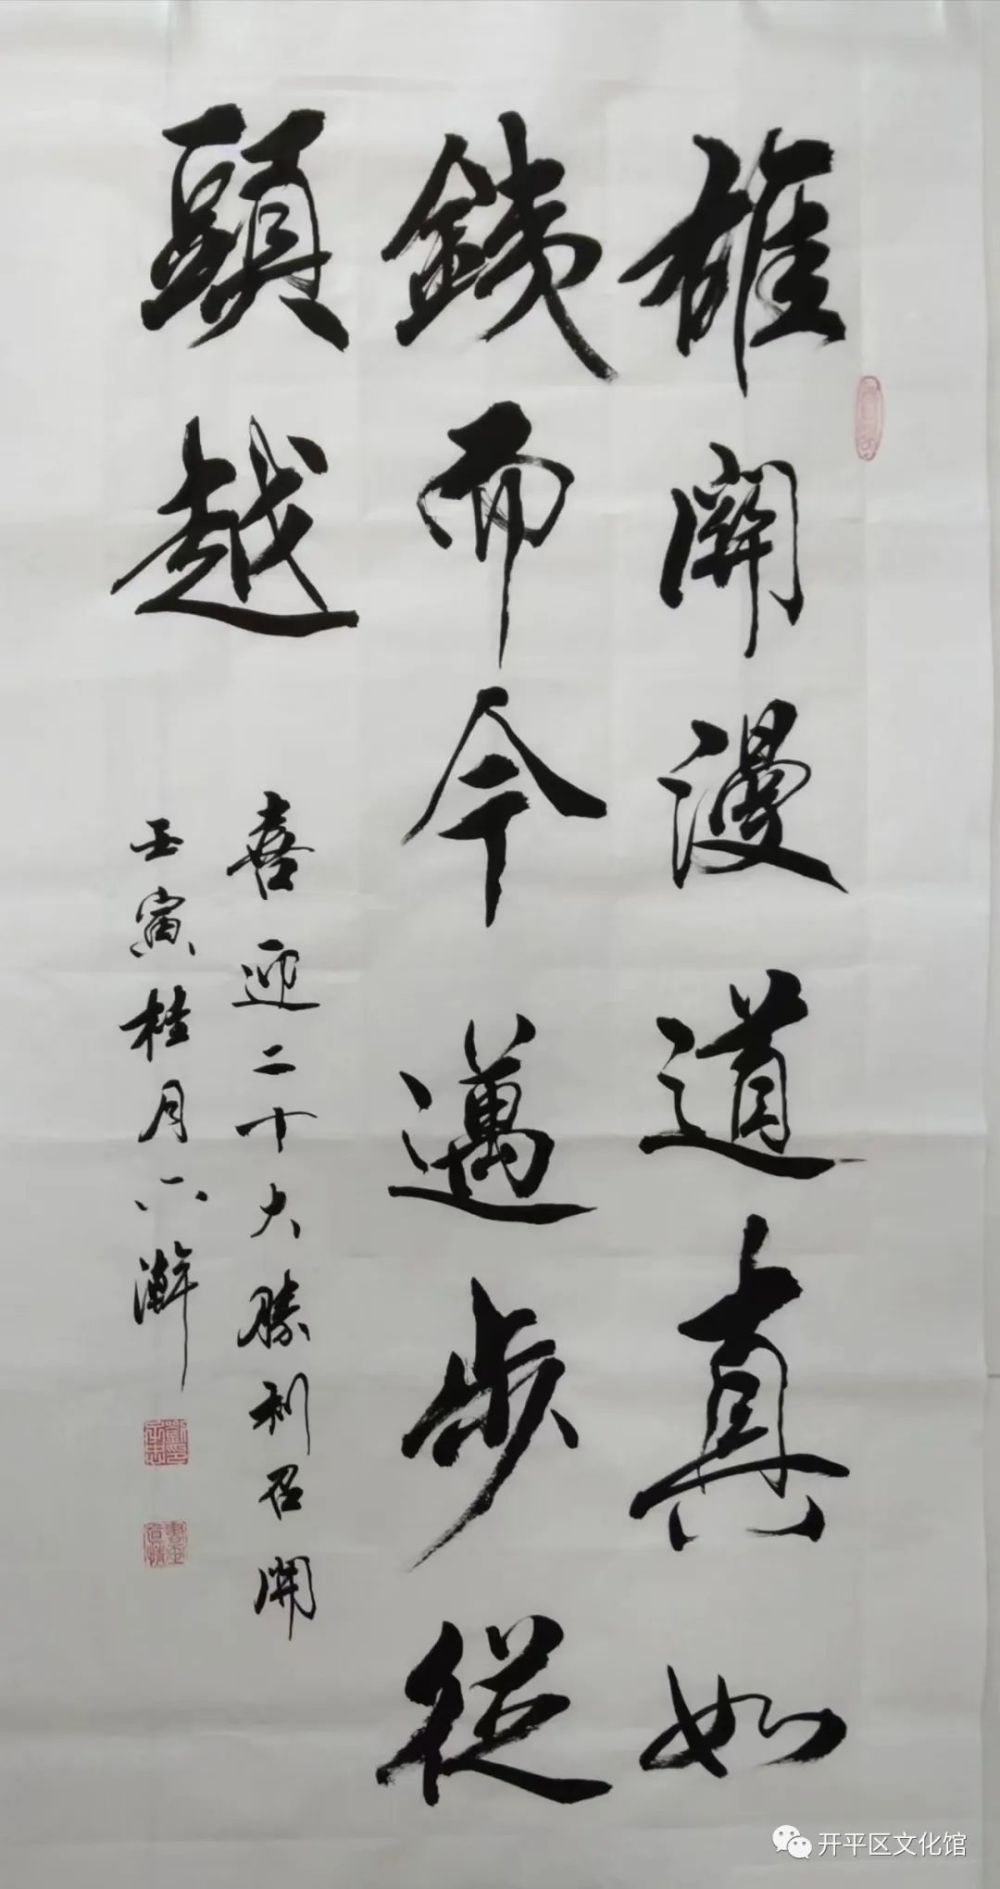 雄關漫道真如
鐵而今邁步從
頭越
喜迎二十大勝利召開
壬寅桂月
开平区文化馆